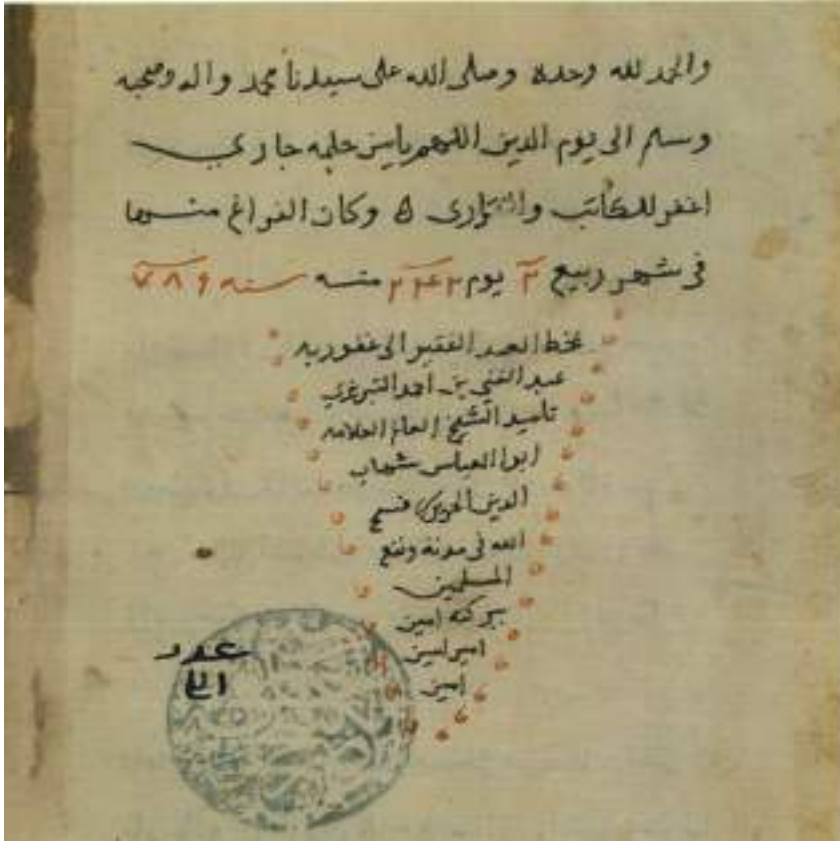 والحمد لله وحده وصلى الله على سيدنا محمد واله وصحبه
وسلم الى يوم الدين اللهم يا من حلمه جاري
اغفر للكاتب والقاري ٥ وكان الفراغ منسها
في شهر ربيع ٢ يوم منسه سنه
بخط العبد الفقير الى عفو ربه
عبد الغني بن احمد
تلميذ الشيخ العالم العلامه
ابو العباس شهاب
الدين فسح
الله في مدته ونفع
المسلمين
ببركته امين
امين امين
امين
عدد